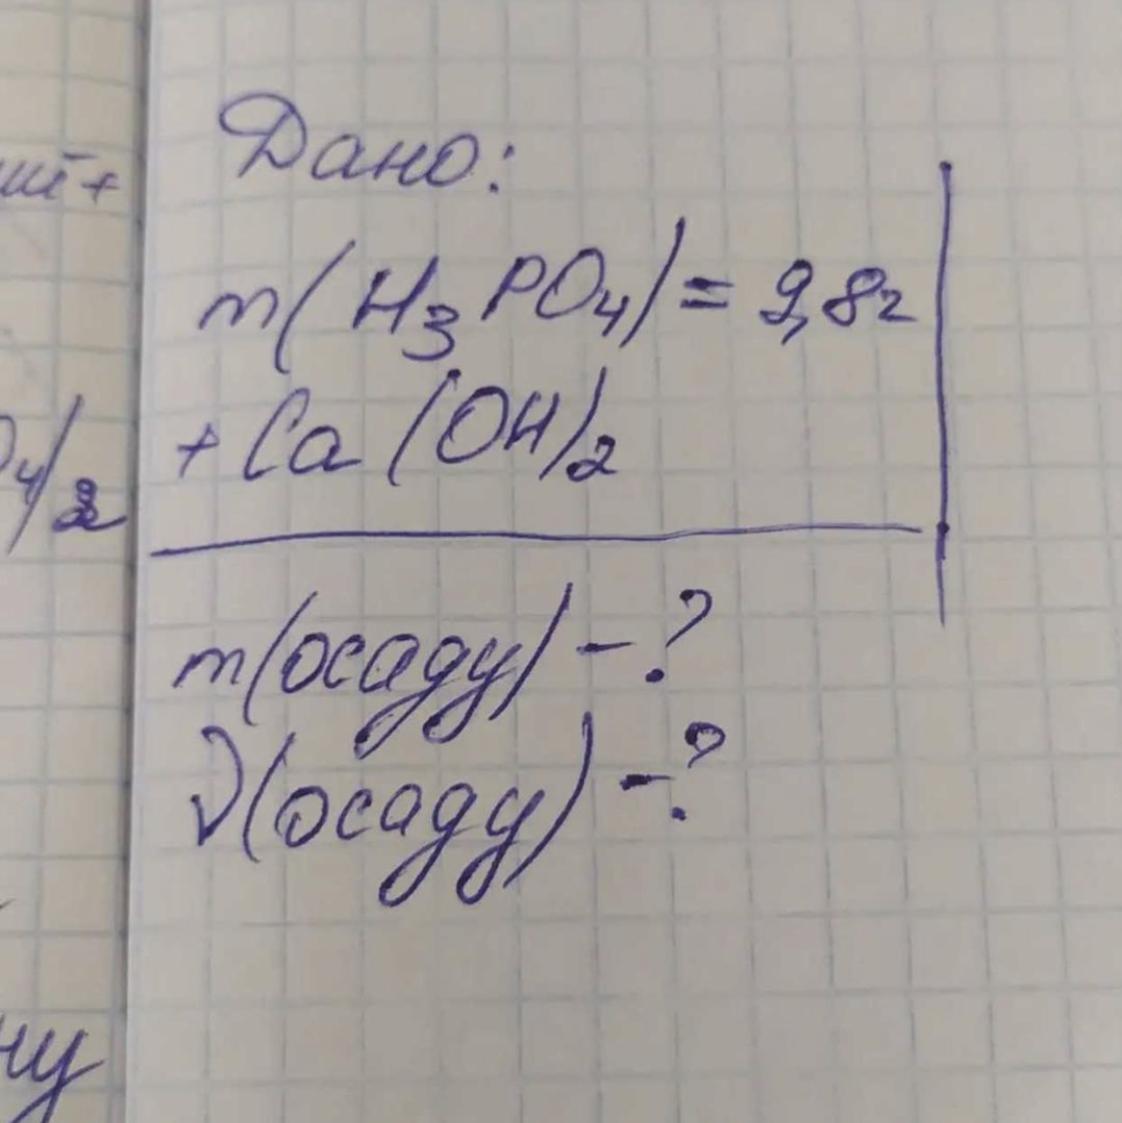 Дано:
m(H₃PO₄)=9,8г
+Ca(OH)₂
m(осаду)-?
ν(осаду)-?